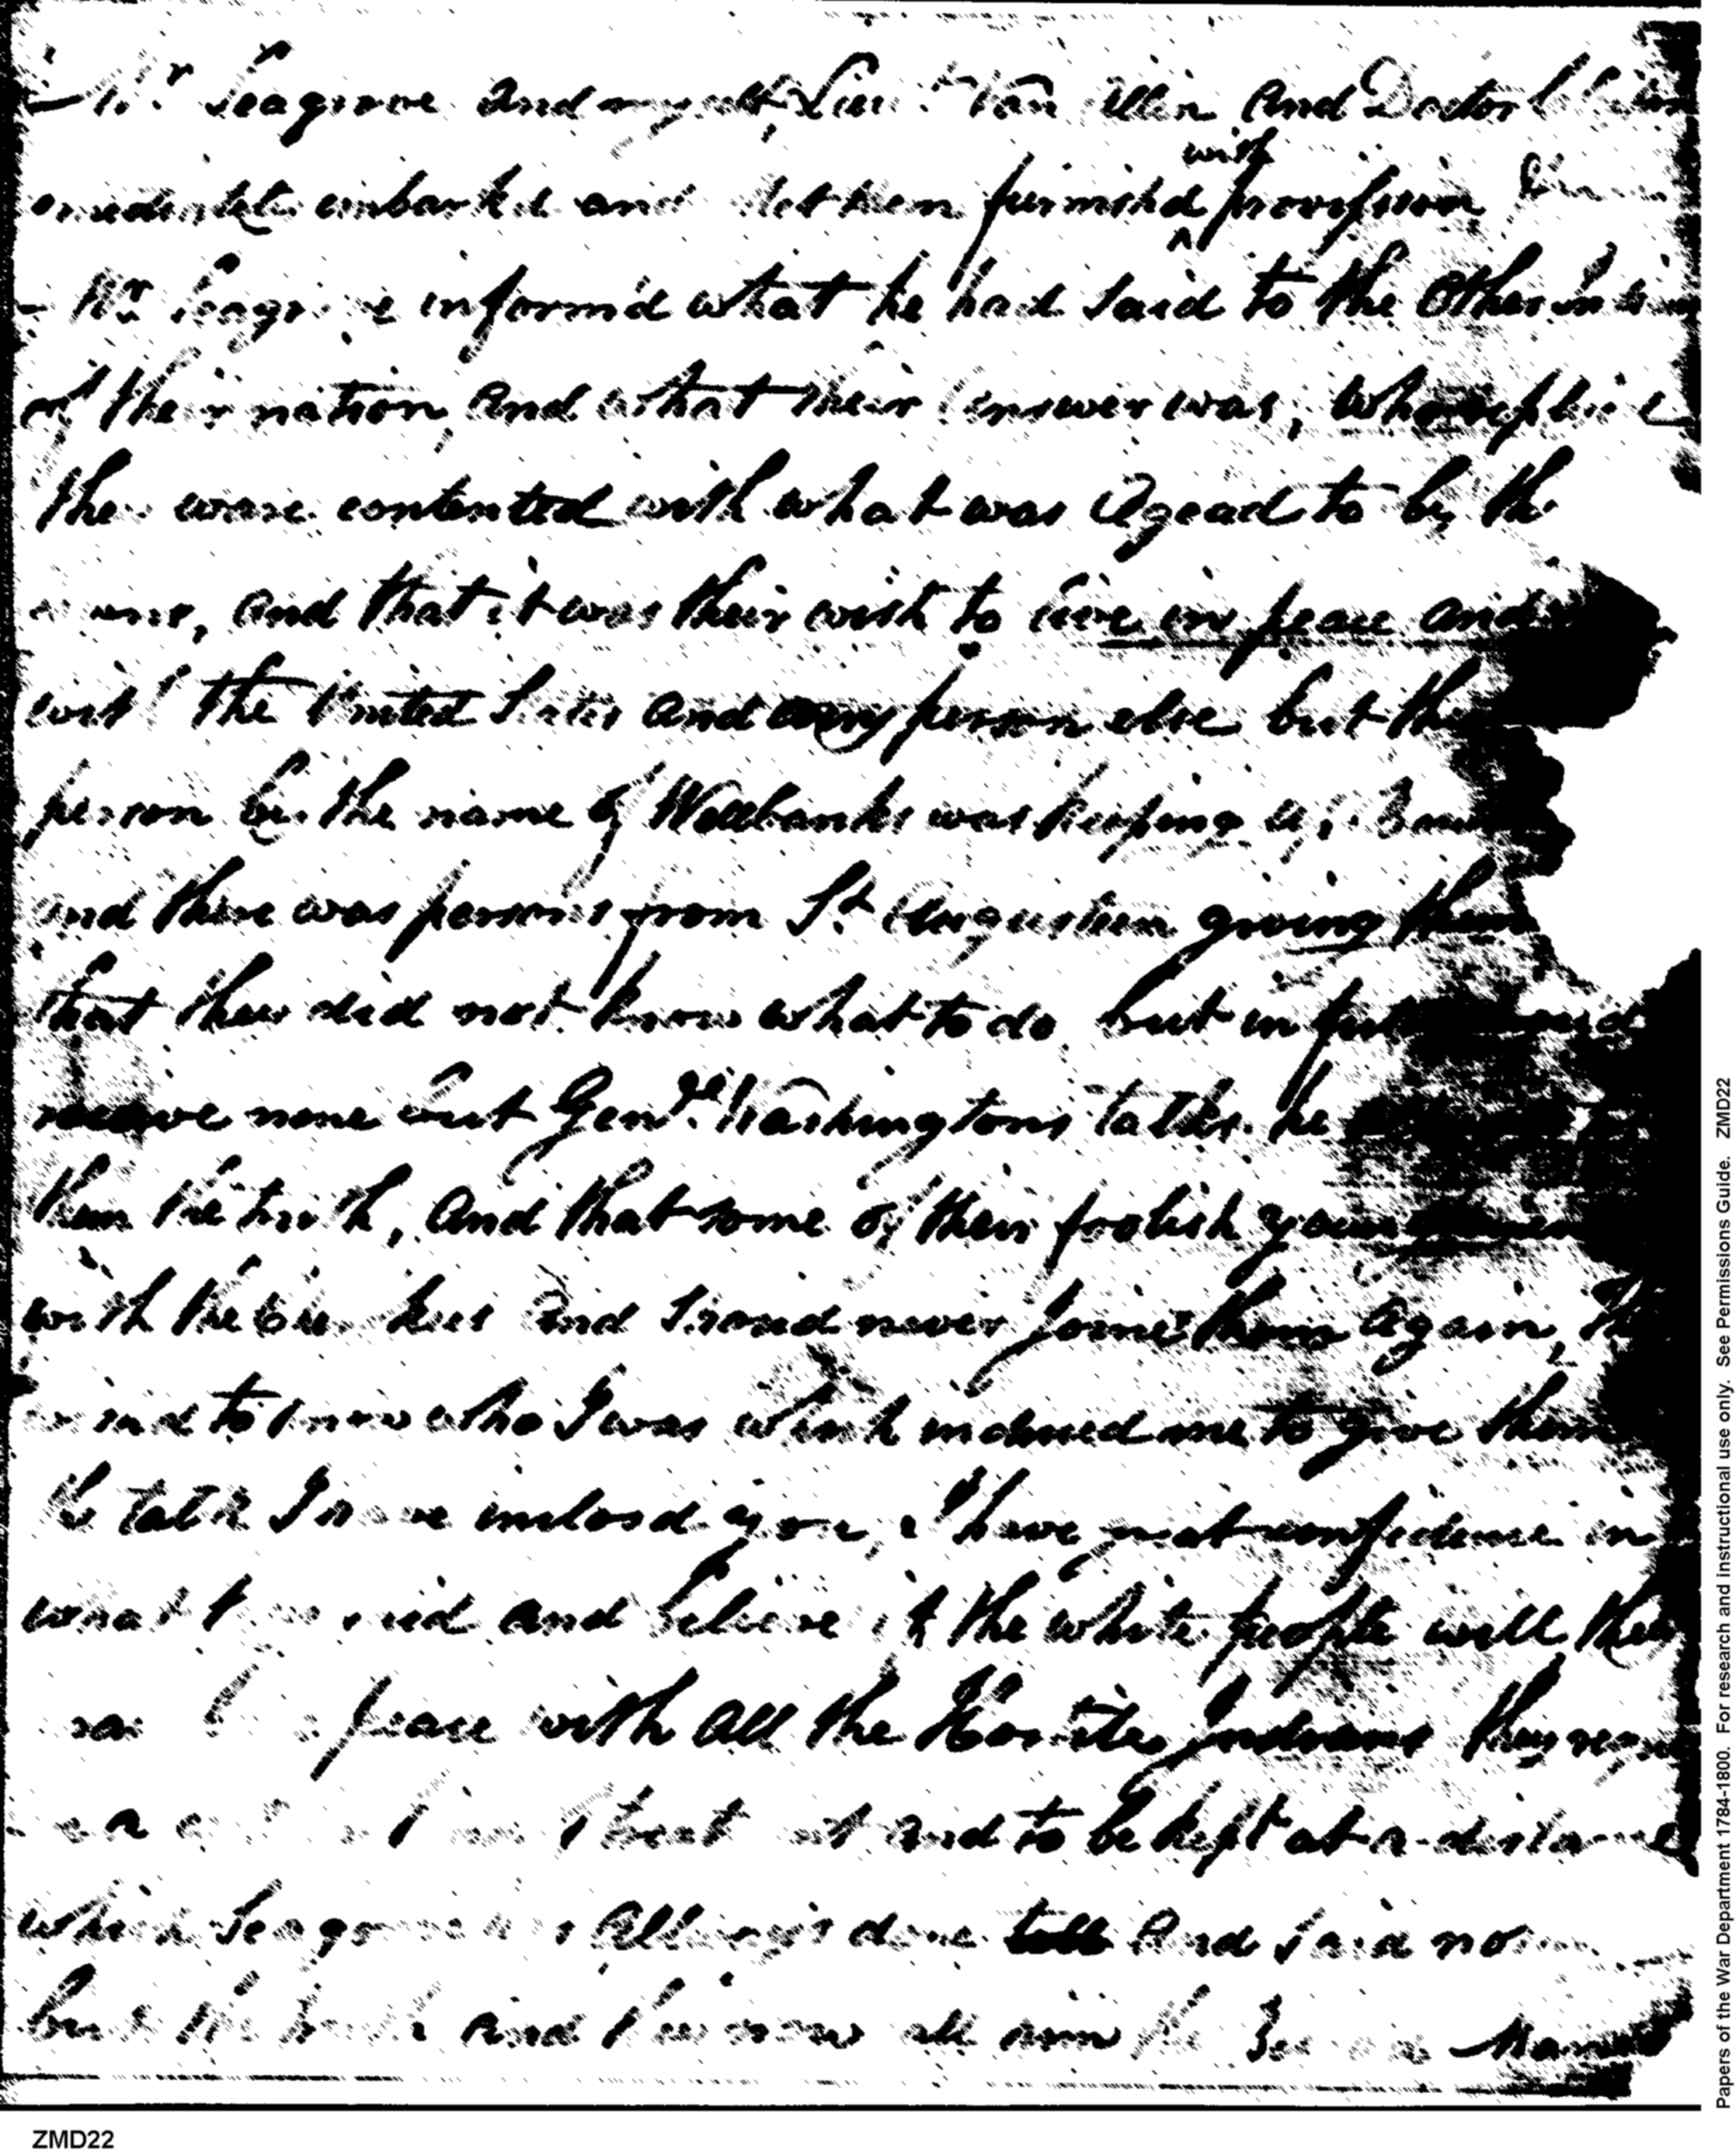 Mr Seagrove and myself, Lieut Van Allen And Doctor
embarked and let them furnishd with provission
Mr Seagrove informd what he had Said to the Other Indians
of their nation, And what their answer was, who replied
they ware contented with what was Agead to by the
and that it was their wish to live in peace and
with the United States and every person else but the
person by the name of Wellbanks was keeping up
and there was persons from St Augusteen giving them
that they did not know what to do, but in
receive none but Genrl Washingtons talks. he
them the truth, And that some of their foolish young men
with the And Should never Joine them Again, They
to know who I was which induced me to give them
the talk I have inclosd you, I have great confidence in
what they said And believe if the white people will they
peace with all the Hostile Indians they
treat and to be kept at a distance
which Seagrove has Allways done And Said
but the truth And they now all him the Man
Papers of the War Department 1784-1800. For research and instructional use only. See Permissions Guide. ZMD22
ZMD22